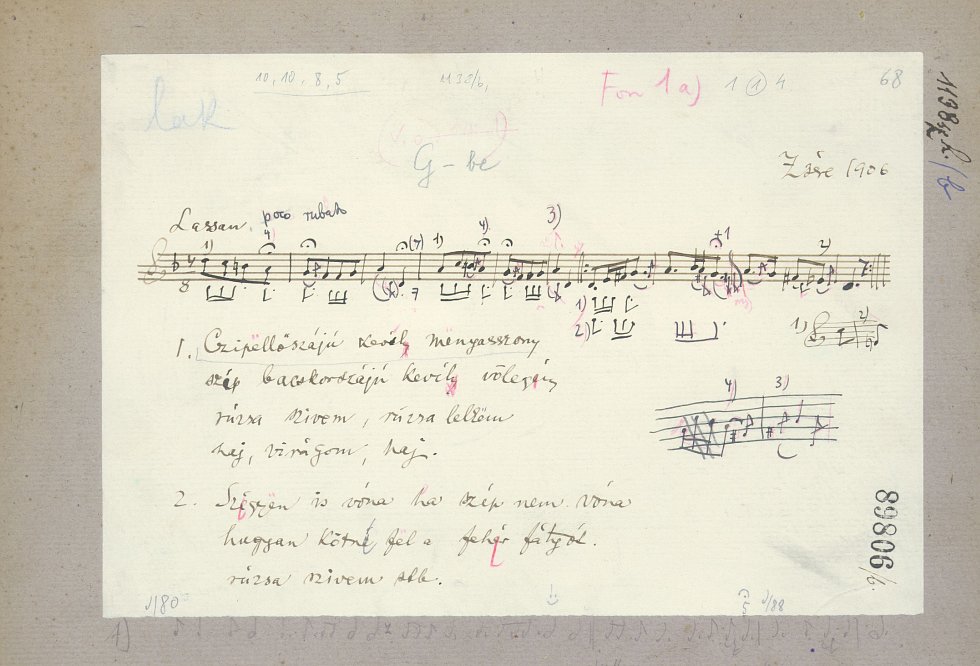 10, 10, 8, 5
Fon 1 a)
1 1 4
68
lak
G-be
Zsére 1906
Lassan. poco rubato
1) 4) (7) 1) 4) 3) +1 2)
8
1)
2)
1) 2)
4) 3)
1. Czipëllőszájú kevély mënyasszony
szép bacskorszájú kevély vőlegény
rúzsa szivem, rúzsa lelkëm
haj, virágom, haj.
2. Szégyen is vóna ha szép nem vóna
hugyan kötné fel a fehér fátyót.
rúzsa szivem stb.
1/80
1/88
89806/b.